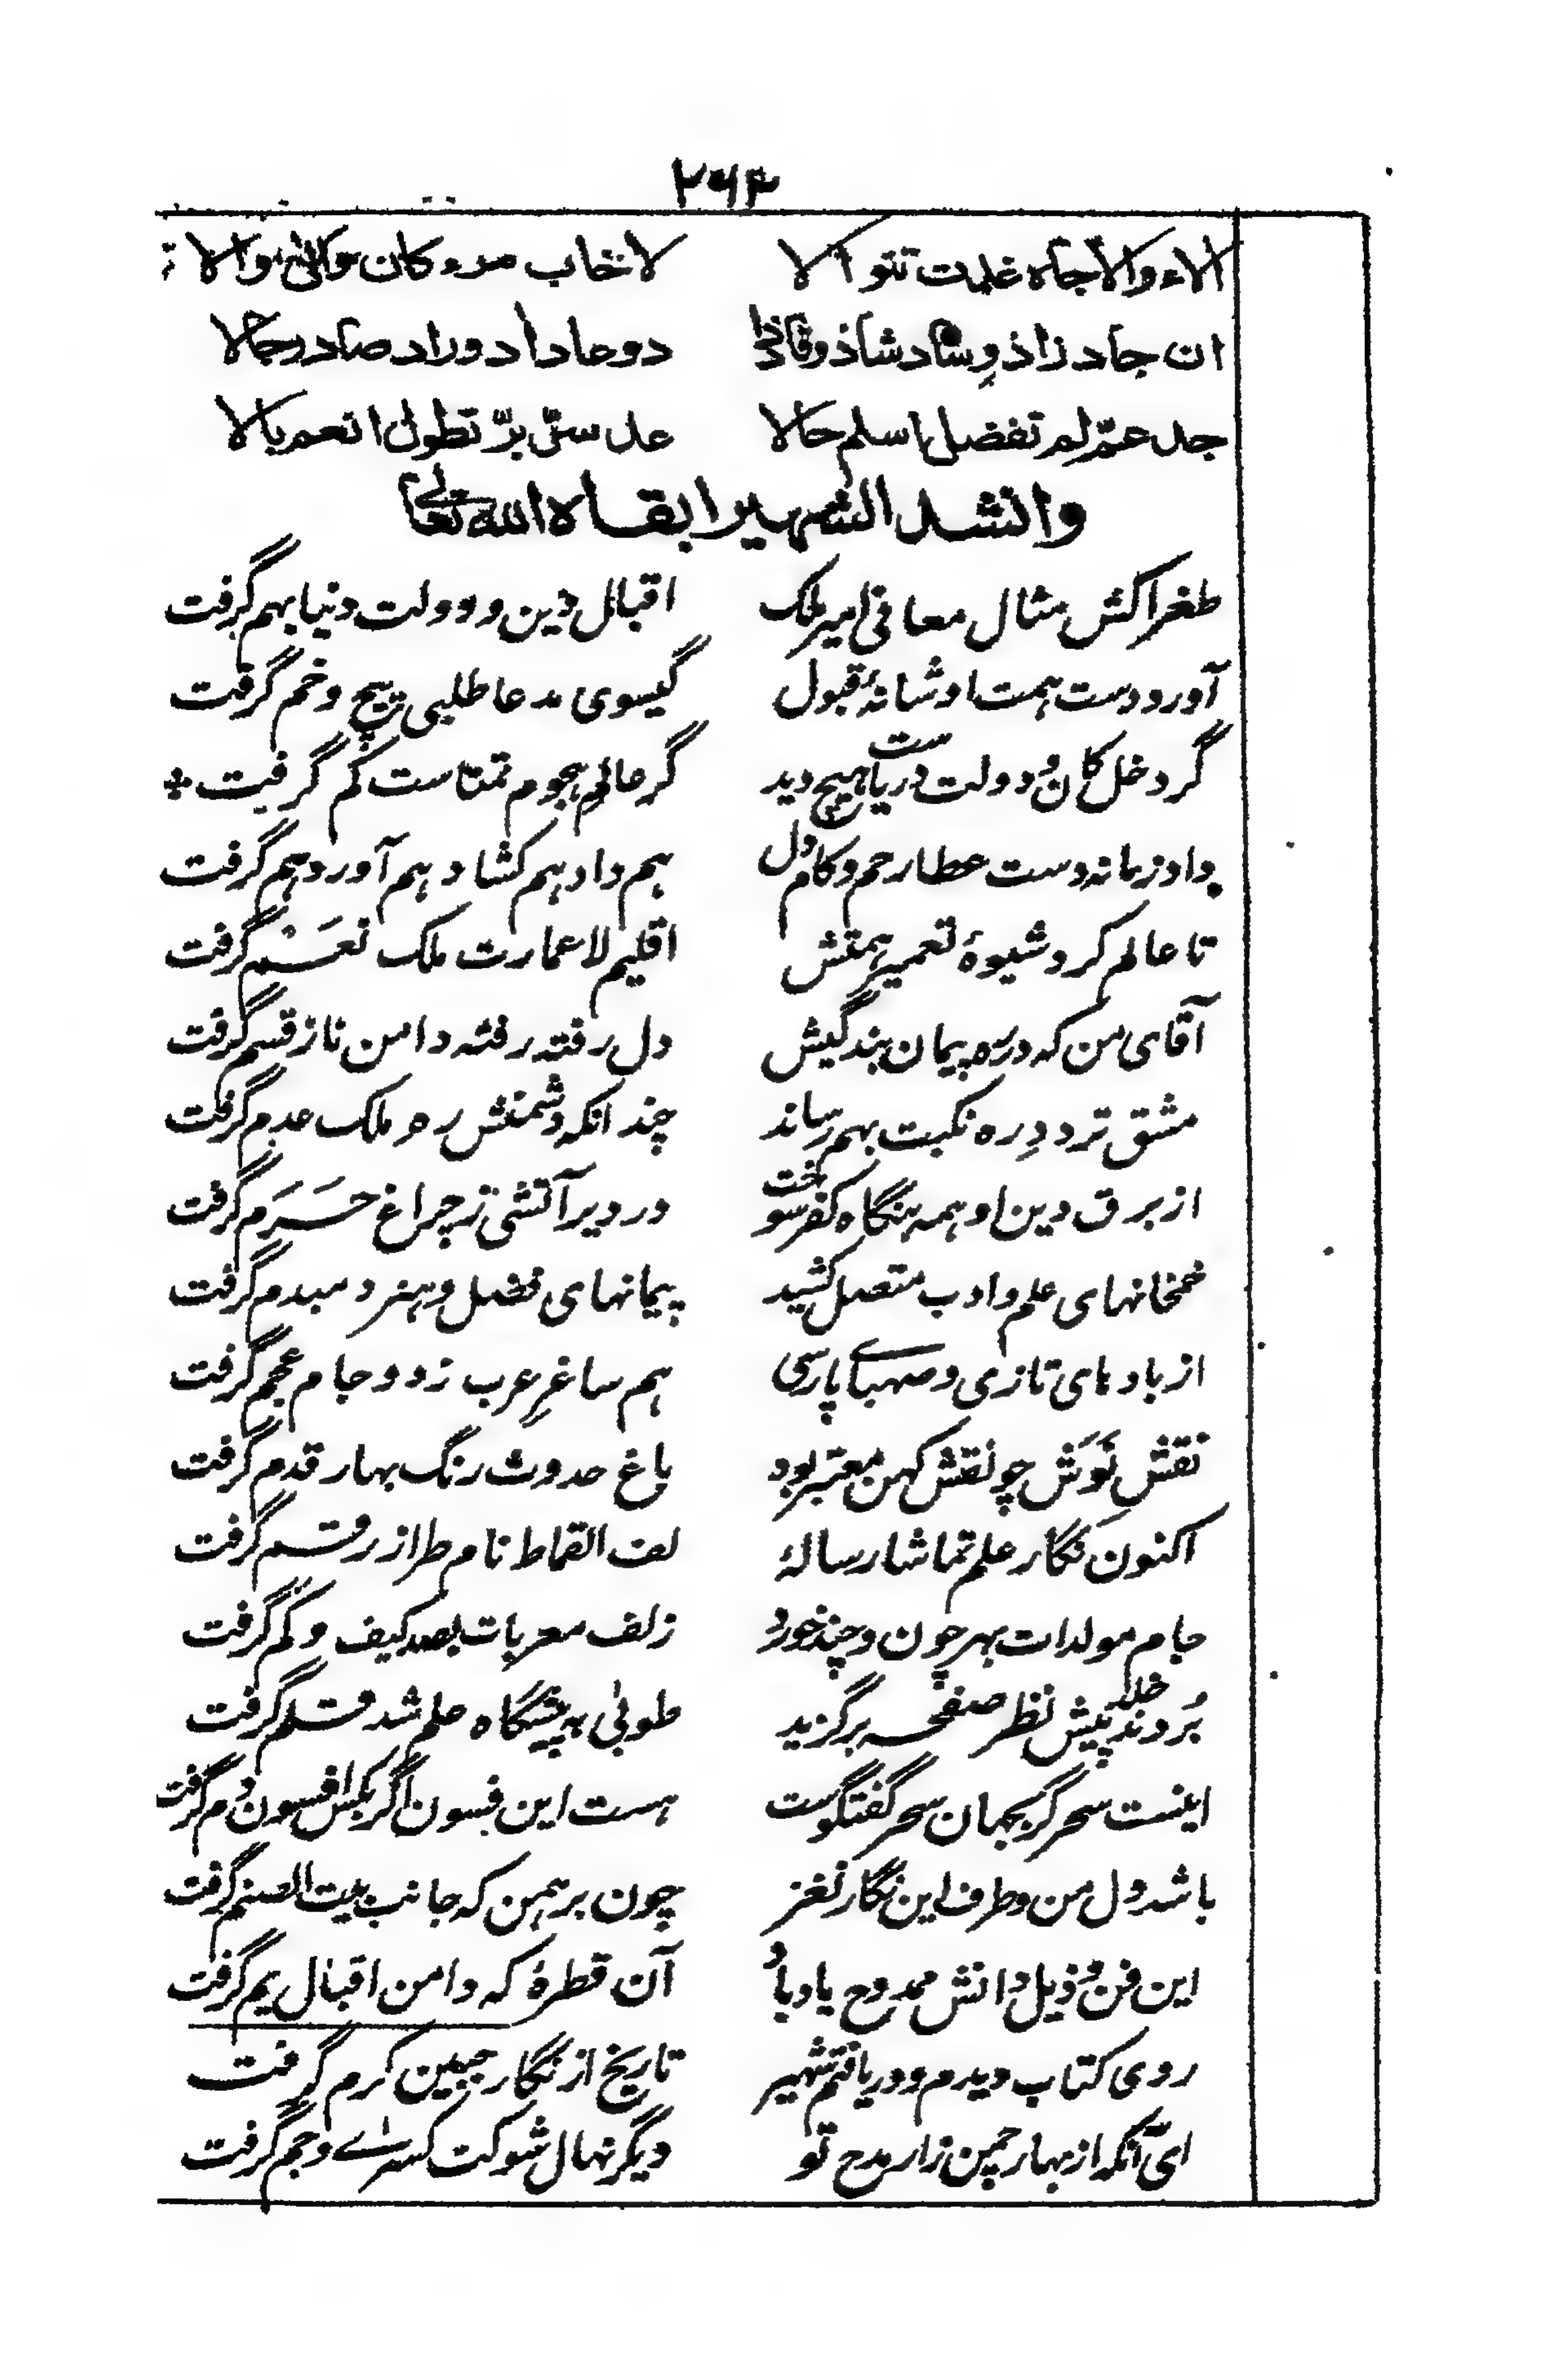 ۲۶۴
الاء والاجاه غلبت تتوالا لاخاب مرء كان موالى والا
ان جاد زاذ وساد شاذ وفاذا دوحاد ادوراد صادر حالا
جد عمّ لم تفضل اسلم حالا عد سنّ برّ تطول انعم بالا
وانشد الشهير ابقاه الله تعالے
طغراکش مثال معافی امیر ملک اقبال دین و دولت دنیا بهم گرفت
آورد دست همت او شانهٔ قبول گیسوی مدعا طلبی پیچ و خم گرفت
گر دخل کان و دولت دریاست هیچ دید گر عالم هجوم تمناست کم گرفت *
داد زمانه دست عطا رحم و کام دل هم داد هم کشاد هم آورد هم گرفت
تا عالم کرد شیوهٔ تعمیر همتش اقلیم لا عمارت ملک نعَم گرفت
آقای من که در ره پیمان بندگیش دل رفته رفته دامن ناز قسم گرفت
مشق تردد ره نکبت بهم رساند چندانکه دشمنش ره ملک عدم گرفت
از برق دین او همه بنگاه کفر سوخت در دیر آتشی ز چراغ حَرَم گرفت
خمخانهای علم و ادب متصل کشید پیمانهای فضل و هنر دمبدم گرفت
از بادهای تازی و صهبای پارسی هم ساغرِ عرب زد و جام عجم گرفت
نقشِ نَوَش چو نقش کهن معتبر بود باغ حدوث رنگ بهار قدم گرفت
اکنون نگار علم تماشا رسالهٔ لف القماط نام طراز رقم گرفت
جام مولدات بهر چون و چند خورد زلف معربات بصد کیف و کم گرفت
بُردند خلد پیش نظر صفحه برگزید طوبیٰ به پیشگاه علم شد قلم گرفت
اینست سحر گر بجهان سحر گفتگوست هست این فسون اگر بکس افسون و دم گرفت
باشد دل من و طرف این نگار نغز چون برهمن که جانب بیت الصنم گرفت
این فن و ذیل دانش ممدوح یاد باد آن قطرهٔ که دامن اقبال یم گرفت
روی کتاب دیدم و دریافتم شهیر تاریخ از نگار جبین کرم گرفت
ای آنکه از بهار چمن زار مدح تو دیگر نهال شوکت کسرٰے و جم گرفت